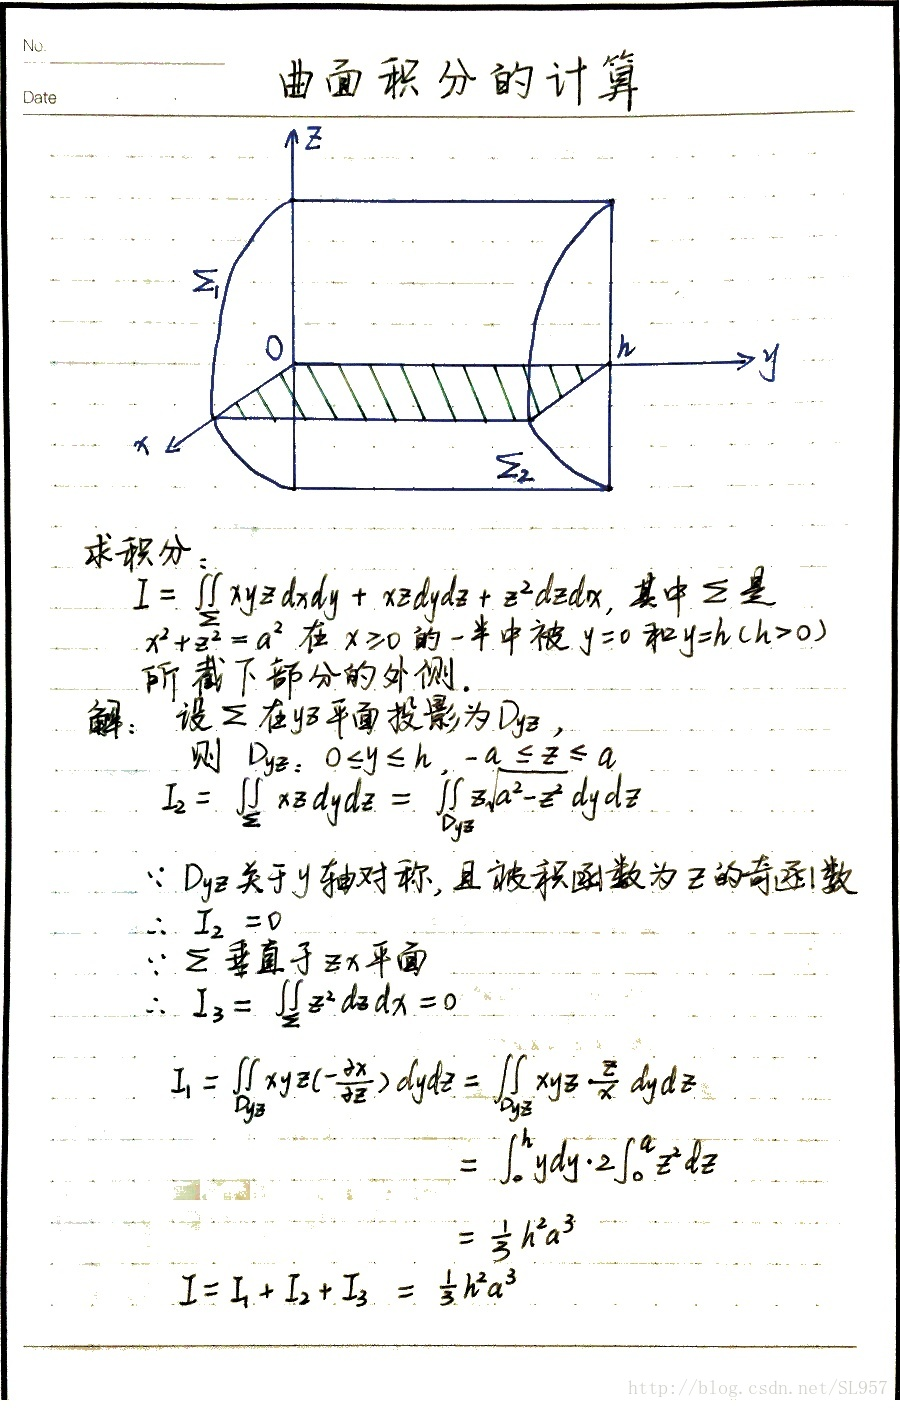 No.
Date
曲面积分的计算
z
Σ₁
O
h
y
x
Σ₂
求积分:
I = ∬_Σ xyz dxdy + xzdydz + z²dzdx, 其中 Σ 是
x²+z²=a² 在 x≥0 的一半中被 y=0 和 y=h (h>0)
所截下部分的外侧.
解: 设 Σ 在 yz 平面投影为 Dyz,
则 Dyz: 0≤y≤h, -a≤z≤a
I₂ = ∬_Σ xz dydz = ∬_Dyz z√(a²-z²) dydz
∵ Dyz 关于 y 轴对称, 且被积函数为 z 的奇函数
∴ I₂ = 0
∵ Σ 垂直于 zx 平面
∴ I₃ = ∬_Σ z² dz dx = 0
I₁ = ∬_Dyz xyz(-∂x/∂z) dydz = ∬_Dyz xyz · z/x dydz
= ∫₀^h ydy · 2∫₀^a z²dz
= 1/3 h²a³
I = I₁ + I₂ + I₃ = 1/3 h²a³
http://blog.csdn.net/SL957